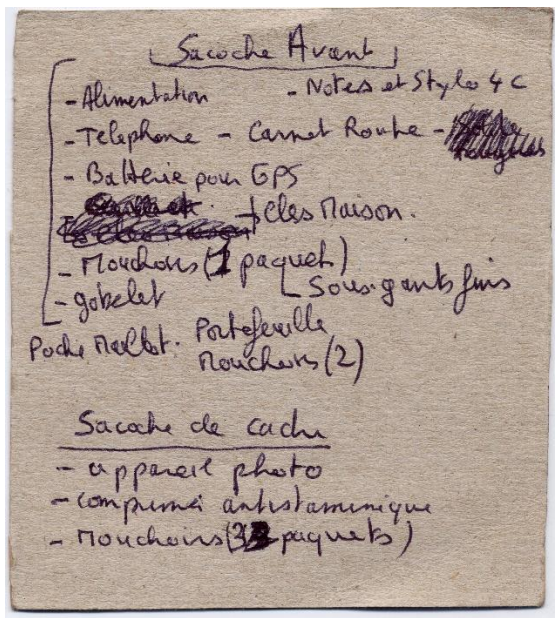 Sacoche Avant
- Alimentation - Notes et Stylo 4 C
- Telephone - Carnet Route -
- Batterie pour GPS
clés Maison.
- Mouchoirs (1 paquet)
- gobelet Sous-gants fins
Poche Maillot. Portefeuille
Mouchoirs (2)
Sacoche de cadre
- appareil photo
- comprimé antistaminique
- Mouchoirs ( paquets)